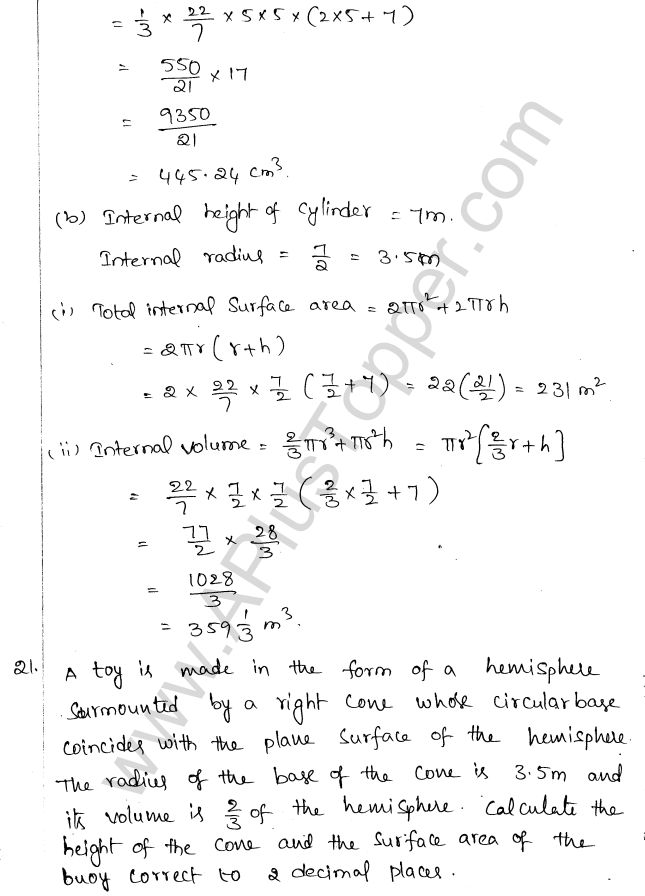 = 1/3 × 22/7 × 5 × 5 × (2×5+7)
= 550/21 × 17
= 9350/21
= 445.24 cm³.
(b) Internal height of cylinder = 7m.
Internal radius = 7/2 = 3.5m
(i) Total internal Surface area = 2πr² + 2πrh
= 2πr (r+h)
= 2 × 22/7 × 7/2 (7/2 + 7) = 22(21/2) = 231 m².
(ii) Internal volume = 2/3πr³ + πr²h = πr²[2/3r + h]
= 22/7 × 7/2 × 7/2 (2/3 × 7/2 + 7)
= 77/2 × 28/3
= 1028/3
= 359 1/3 m³.
21. A toy is made in the form of a hemisphere
surmounted by a right cone whose circular base
coincides with the plane surface of the hemisphere.
The radius of the base of the cone is 3.5m and
its volume is 2/3 of the hemisphere. Calculate the
height of the cone and the surface area of the
buoy correct to 2 decimal places.
www.APlusTopper.com